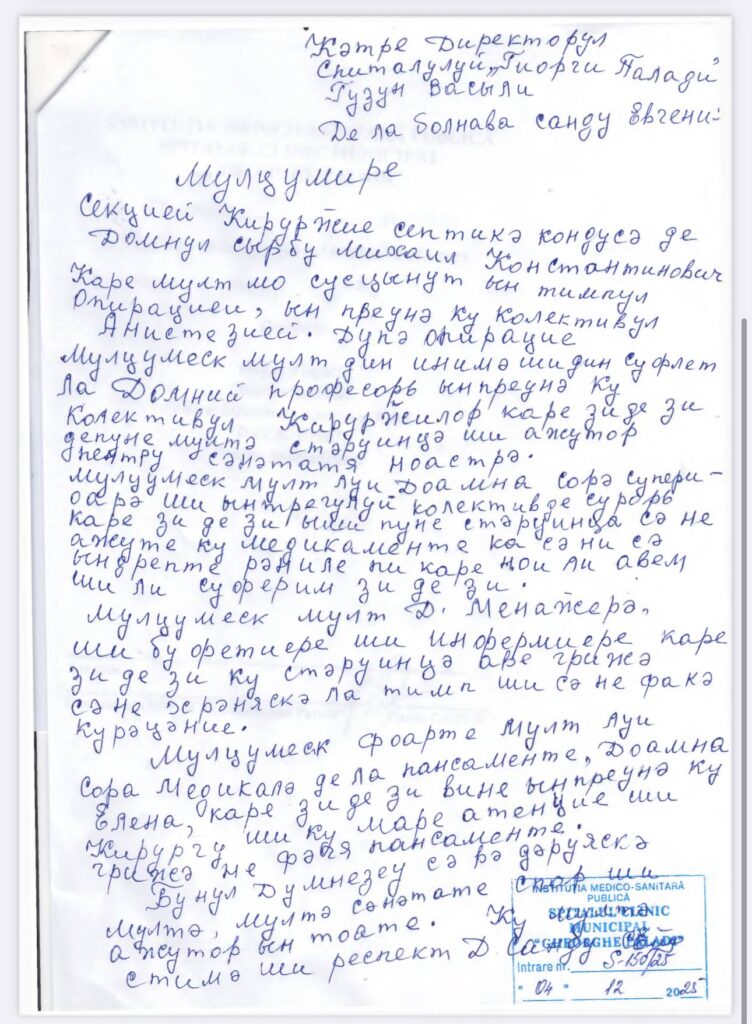 Кэтре Директорул
Спиталулуй „Гиорги Палади"
Гузун Васыли
Де ла болнава санду Евгени:
Мулцумире
Секцией Кируржие септикэ кондусэ де
Домнул сырбу михаил Константинович
Каре мулт мо сусцынут ын тимпул
Опирацией, ын преунэ ку колективул
Анистезией. Дупэ опирацие
мулцумеск мулт дин инимэ шидин суфлет
ла Домний професорь ынпреунэ ку
колективул Кируржилор каре зиде зи
депуне мултэ стэруинцэ ши ажутор
пентру сэнэтатя ноастрэ.
мулцумеск мулт луи Доамна сорэ супери-
оарэ ши ынтрегулуй колектив де сурорь
каре зи де зи ыши пуне стэруинца сэ не
ажуте ку медикаменте ка сэ ни сэ
ындрепте рэниле пи каре ной ли авем
ши ли суферим зи де зи.
Мулцумеск мулт Д. Менажерэ,
ши буфетиере ши инфермиере каре
зи де зи ку стэруинцэ аве грижэ
сэ не эсрэняскэ ла тимп ши сэ не факэ
курэцэние.
Мулцумеск фоарте мулт луи
Сора Медикалэ де ла пансаменте, Доамна
Елена, каре зи де зи вине ынпреунэ ку
Кирургу ши ку маре атенцие ши
грижэ не фэчя пансаменте.
Бунул Думнезеу сэ вэ дэруяскэ
мултэ, мултэ сэнэтате спор ши
ажутор ын тоате. Ку мултэ
стимэ ши респект Д. Санду
INSTITUȚIA MEDICO-SANITARĂ
PUBLICĂ
SPITALUL CLINIC
MUNICIPAL
"GHEORGHE PALADI"
Intrare nr. S-150/25
"04" 12 2025